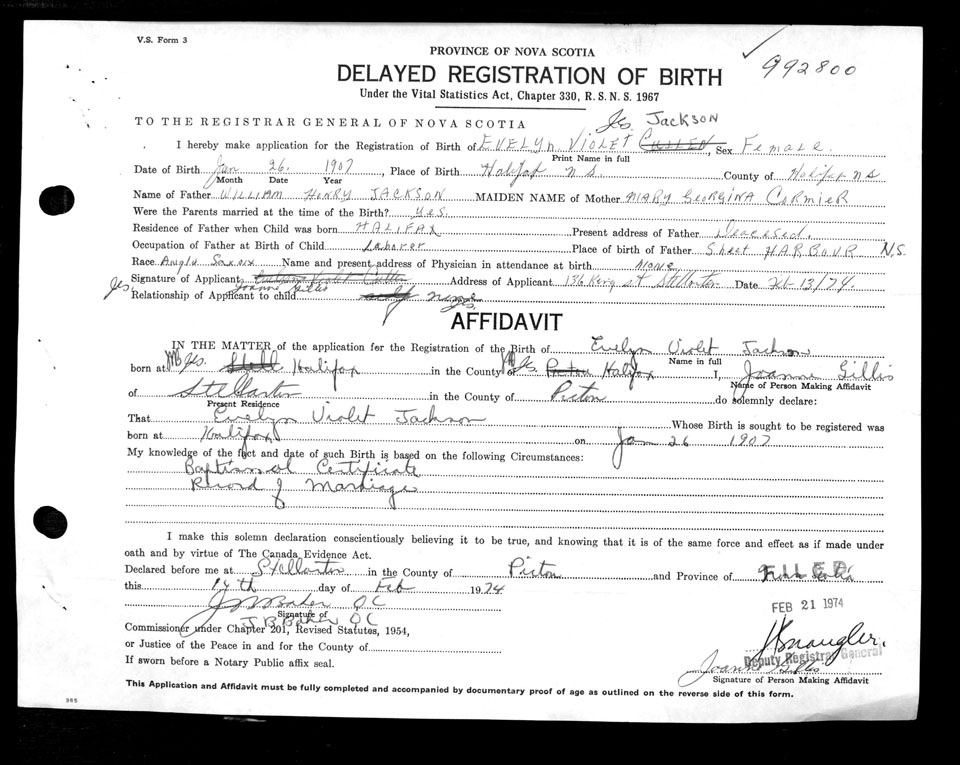 V.S. Form 3
PROVINCE OF NOVA SCOTIA
992800
DELAYED REGISTRATION OF BIRTH
Under the Vital Statistics Act, Chapter 330, R.S.N.S. 1967
JACKSON
TO THE REGISTRAR GENERAL OF NOVA SCOTIA
I hereby make application for the Registration of Birth of EVELYN VIOLET CULLEN, Sex Female.
Print Name in full
Date of Birth Jan 26 1907, Place of Birth Halifax N S. County of Halifax N S
Month Date Year
Name of Father WILLIAM HENRY JACKSON MAIDEN NAME of Mother MARY GEORGINA CORMIER
Were the Parents married at the time of the Birth? Yes.
Residence of Father when Child was born HALIFAX Present address of Father Deceased.
Occupation of Father at Birth of Child Laborer Place of birth of Father Sheet HARBOUR N.S.
Race Anglo Name and present address of Physician in attendance at birth NONE
Signature of Applicant Violet Address of Applicant 136 King st Stellarton Date Feb 13/74.
Joanne Gillis
Relationship of Applicant to child self
AFFIDAVIT
IN THE MATTER of the application for the Registration of the Birth of Evelyn Violet Jackson
Name in full
born at Halifax in the County of Halifax I, Joanne Gillis
Name of Person Making Affidavit
of Stellarton in the County of Pictou do solemnly declare:
Present Residence
That Evelyn Violet Jackson Whose Birth is sought to be registered was
born at Halifax on Jan 26 1907
My knowledge of the fact and date of such Birth is based on the following Circumstances:
Baptismal Certificate
Record of Marriage
I make this solemn declaration conscientiously believing it to be true, and knowing that it is of the same force and effect as if made under
oath and by virtue of The Canada Evidence Act.
Declared before me at Stellarton in the County of Pictou and Province of Nova Scotia
FILED
this 14th day of Feb 1974
FEB 21 1974
Signature of
J B Baker QC
Commissioner under Chapter 201, Revised Statutes, 1954,
or Justice of the Peace in and for the County of
Deputy Registrar General
If sworn before a Notary Public affix seal.
Joanne Gillis
Signature of Person Making Affidavit
This Application and Affidavit must be fully completed and accompanied by documentary proof of age as outlined on the reverse side of this form.